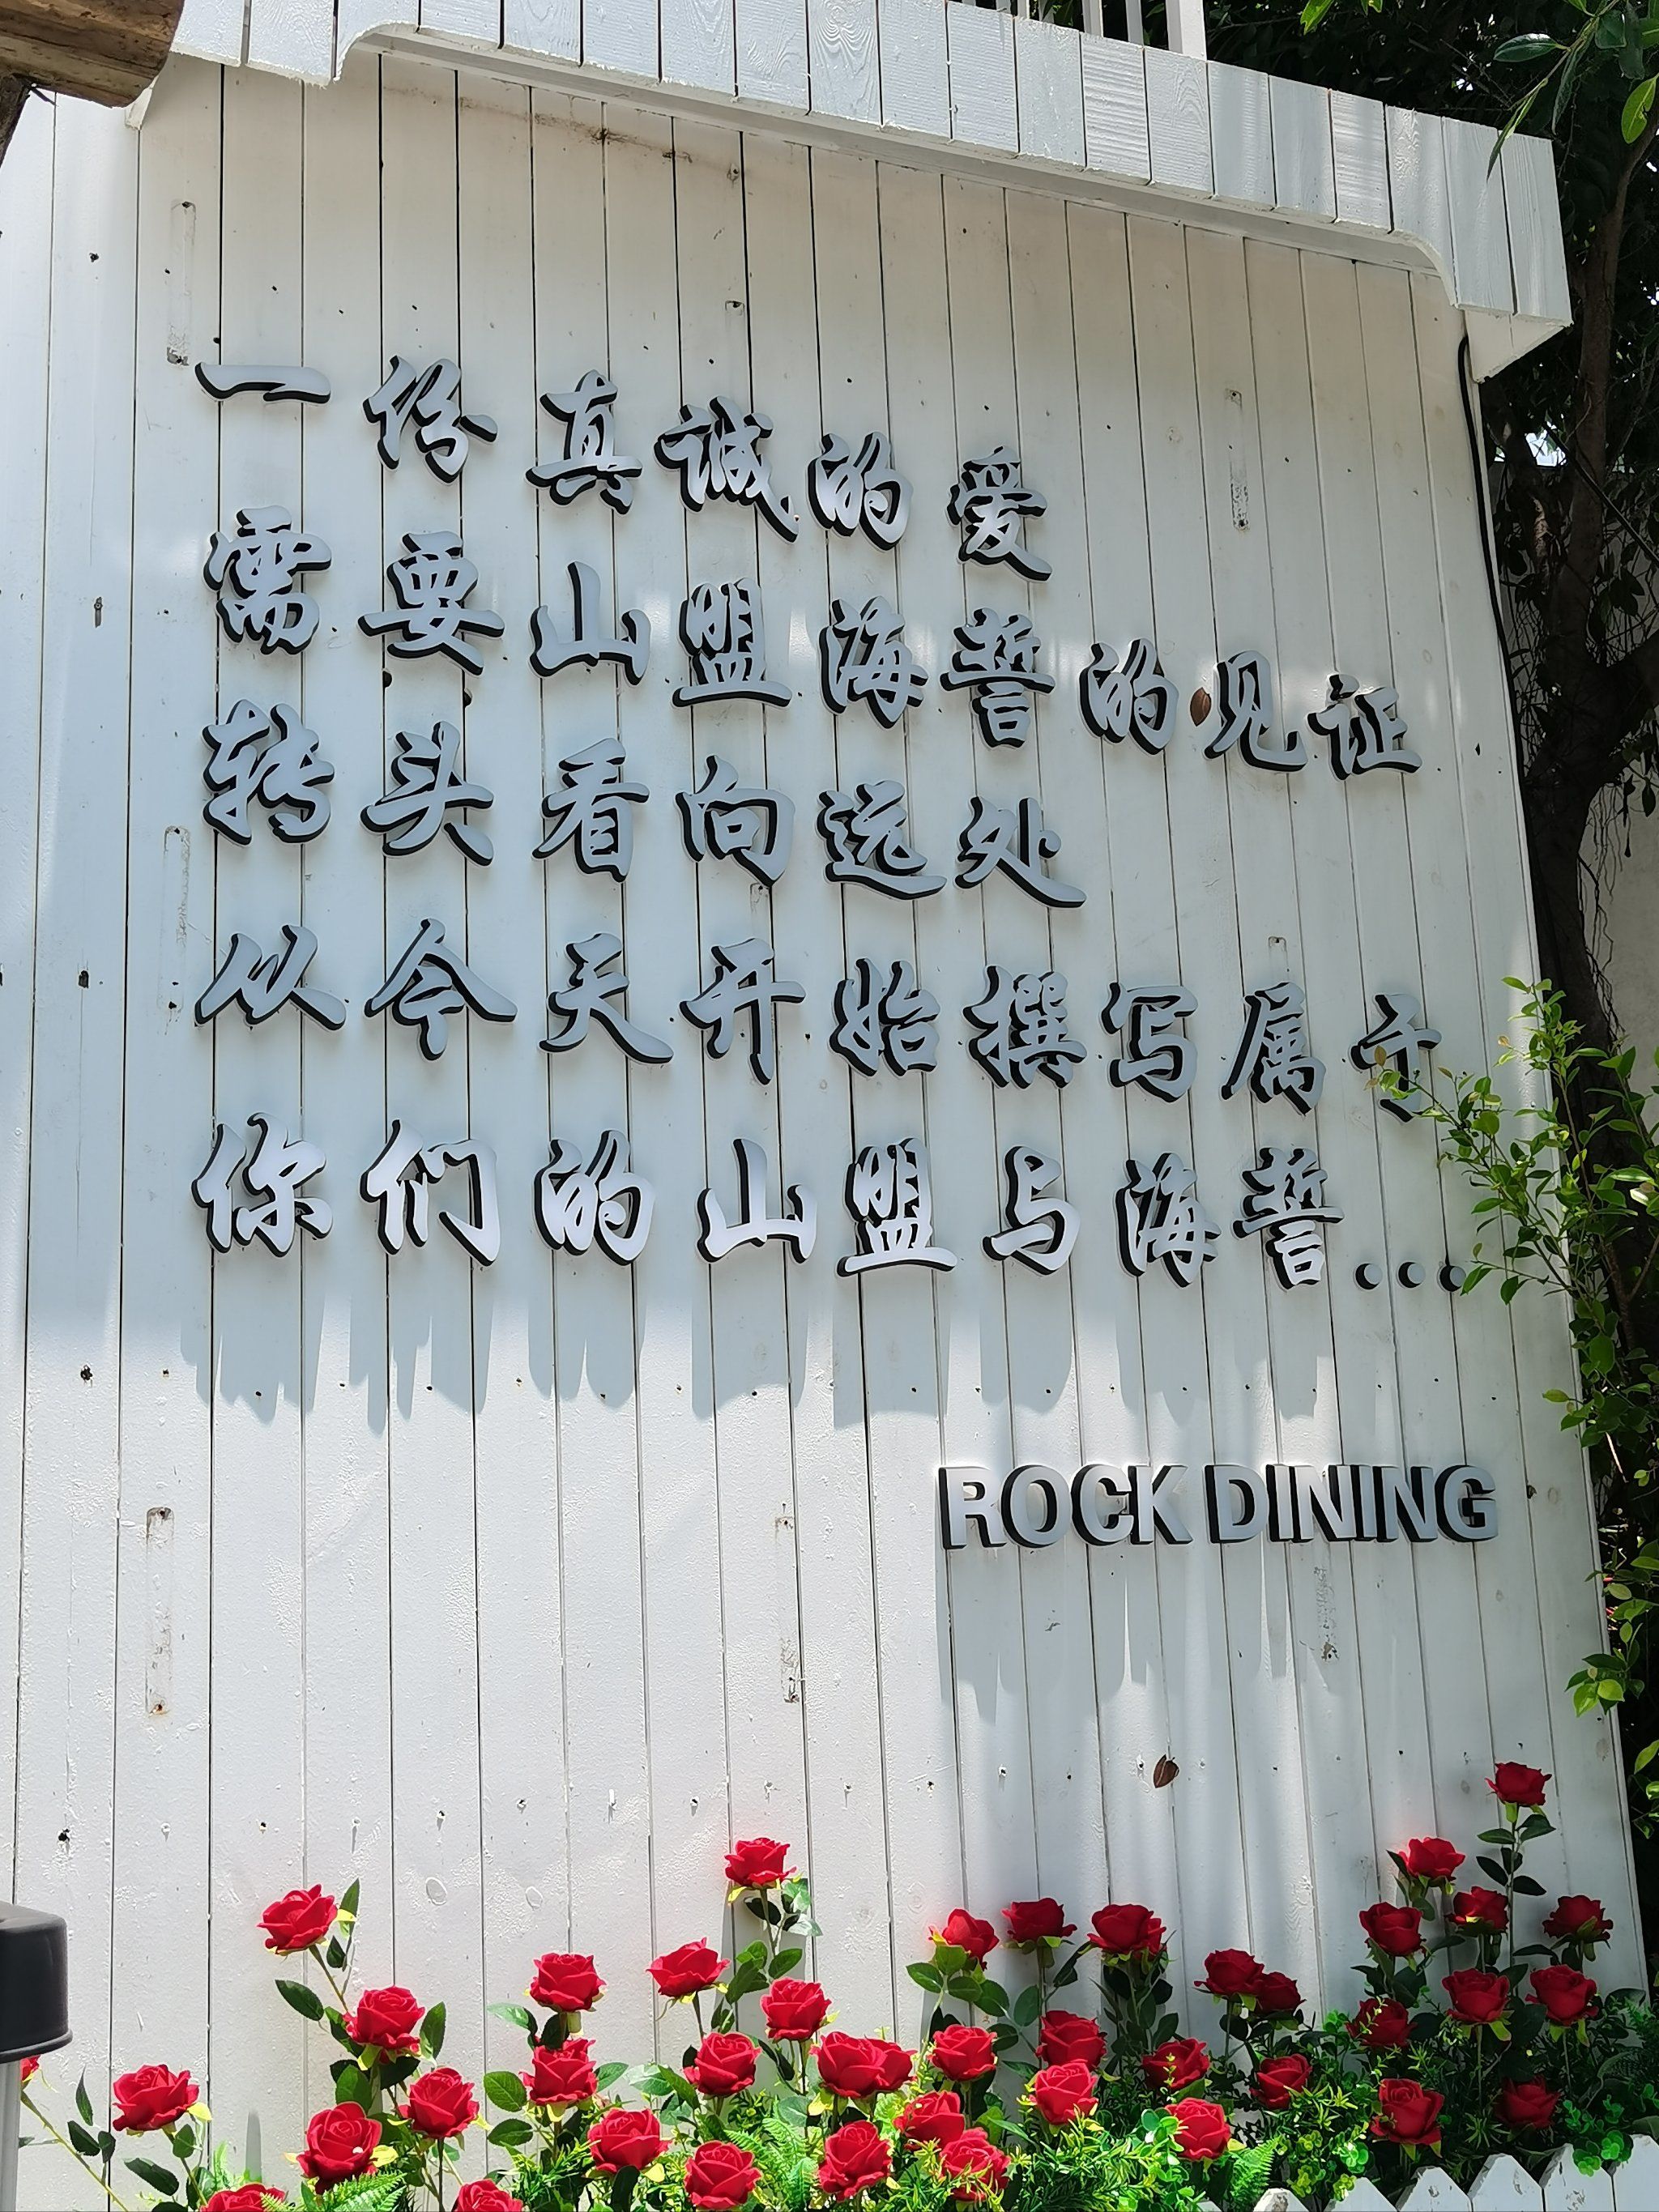 一份真诚的爱
需要山盟海誓的见证
转头看向远处
从今天开始撰写属于
你们的山盟与海誓...
ROCK DINING